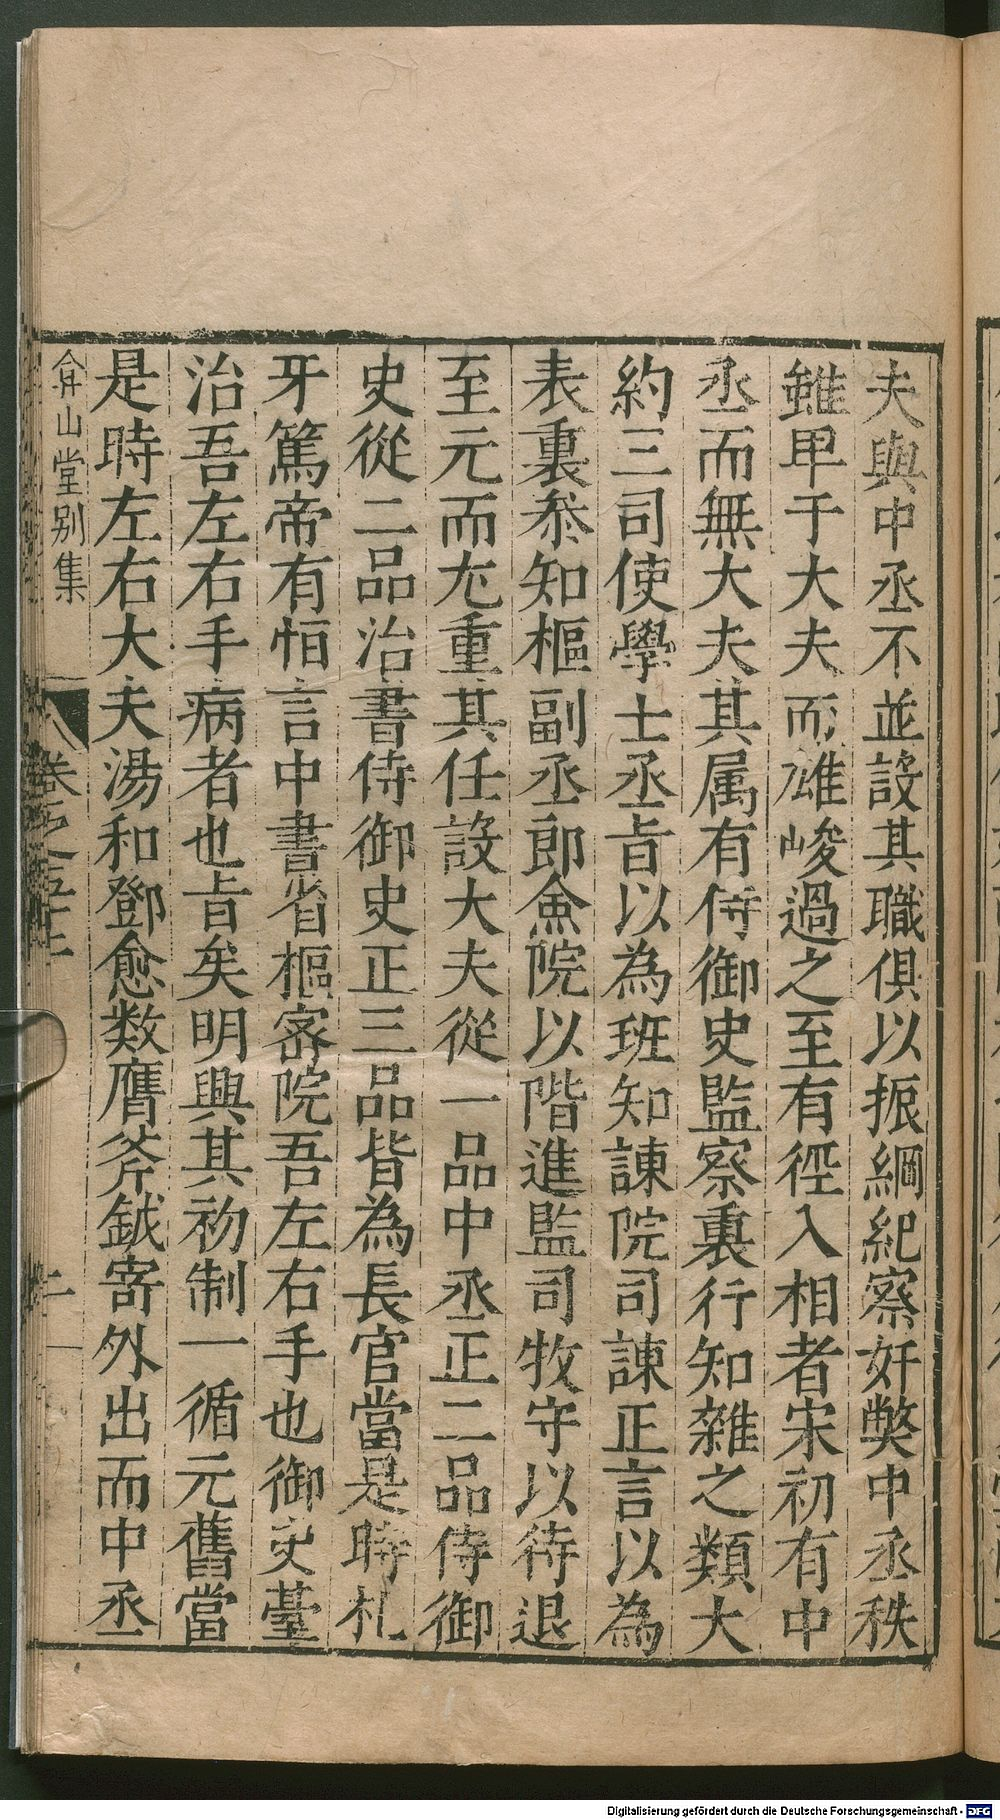 夫與中丞不並設其職俱以振綱紀察奸弊中丞秩
雖卑于大夫而雄峻過之至有徑入相者宋初有中
丞而無大夫其属有侍御史監察裏行知雜之類大
約三司使學士丞旨以為班知諫院司諫正言以為
表裏叅知樞副丞郎僉院以階進監司牧守以待退
至元而尢重其任設大夫從一品中丞正二品侍御
史從二品治書侍御史正三品皆為長官當是時札
牙篤帝有恒言中書省樞密院吾左右手也御史臺
治吾左右手病者也旨矣明興其初制一循元舊當
是時左右大夫湯和鄧愈数膺斧鉞寄外出而中丞
弇山堂别集
卷之五十
二
Digitalisierung gefördert durch die Deutsche Forschungsgemeinschaft - DFG